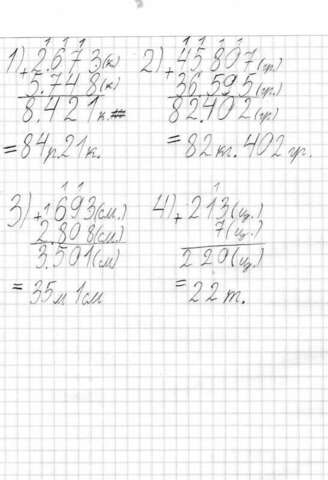 1 1 1
1) +2.673(к)
5.748(к)
8.421к.
=84р21к.
1 1 1 1
2) +45807(гр.)
36.595(гр.)
82.402(гр)
=82кг.402гр.
1 1
3) +1693(см.)
2.808(см.)
3.501(см)
=35м1см
1
4) +213(ц.)
7(ц.)
220(ц.)
=22т.